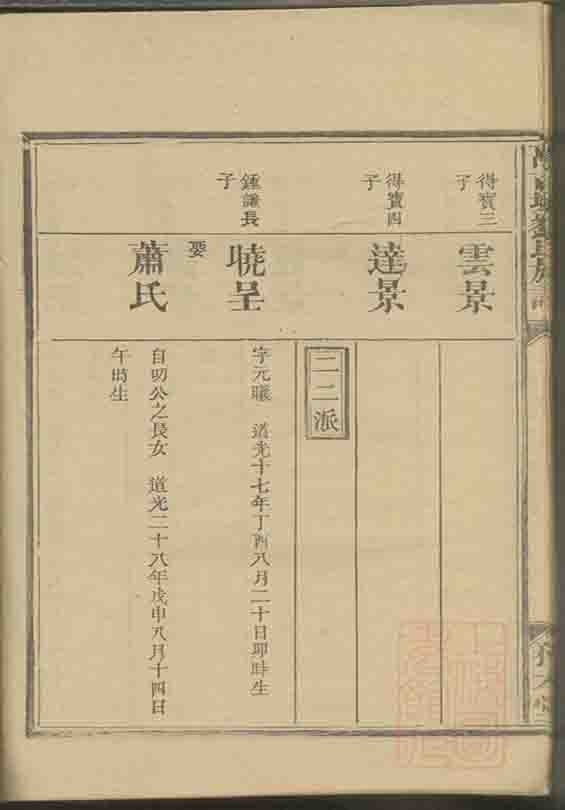 得寶三
子
雲景
得寶四
子
達景
二二派
鍾謙長
子
曉呈
字元曬 道光十七年丁酉八月二十日卯時生
娶
蕭氏
自明公之長女 道光二十八年戊申八月十四日
午時生